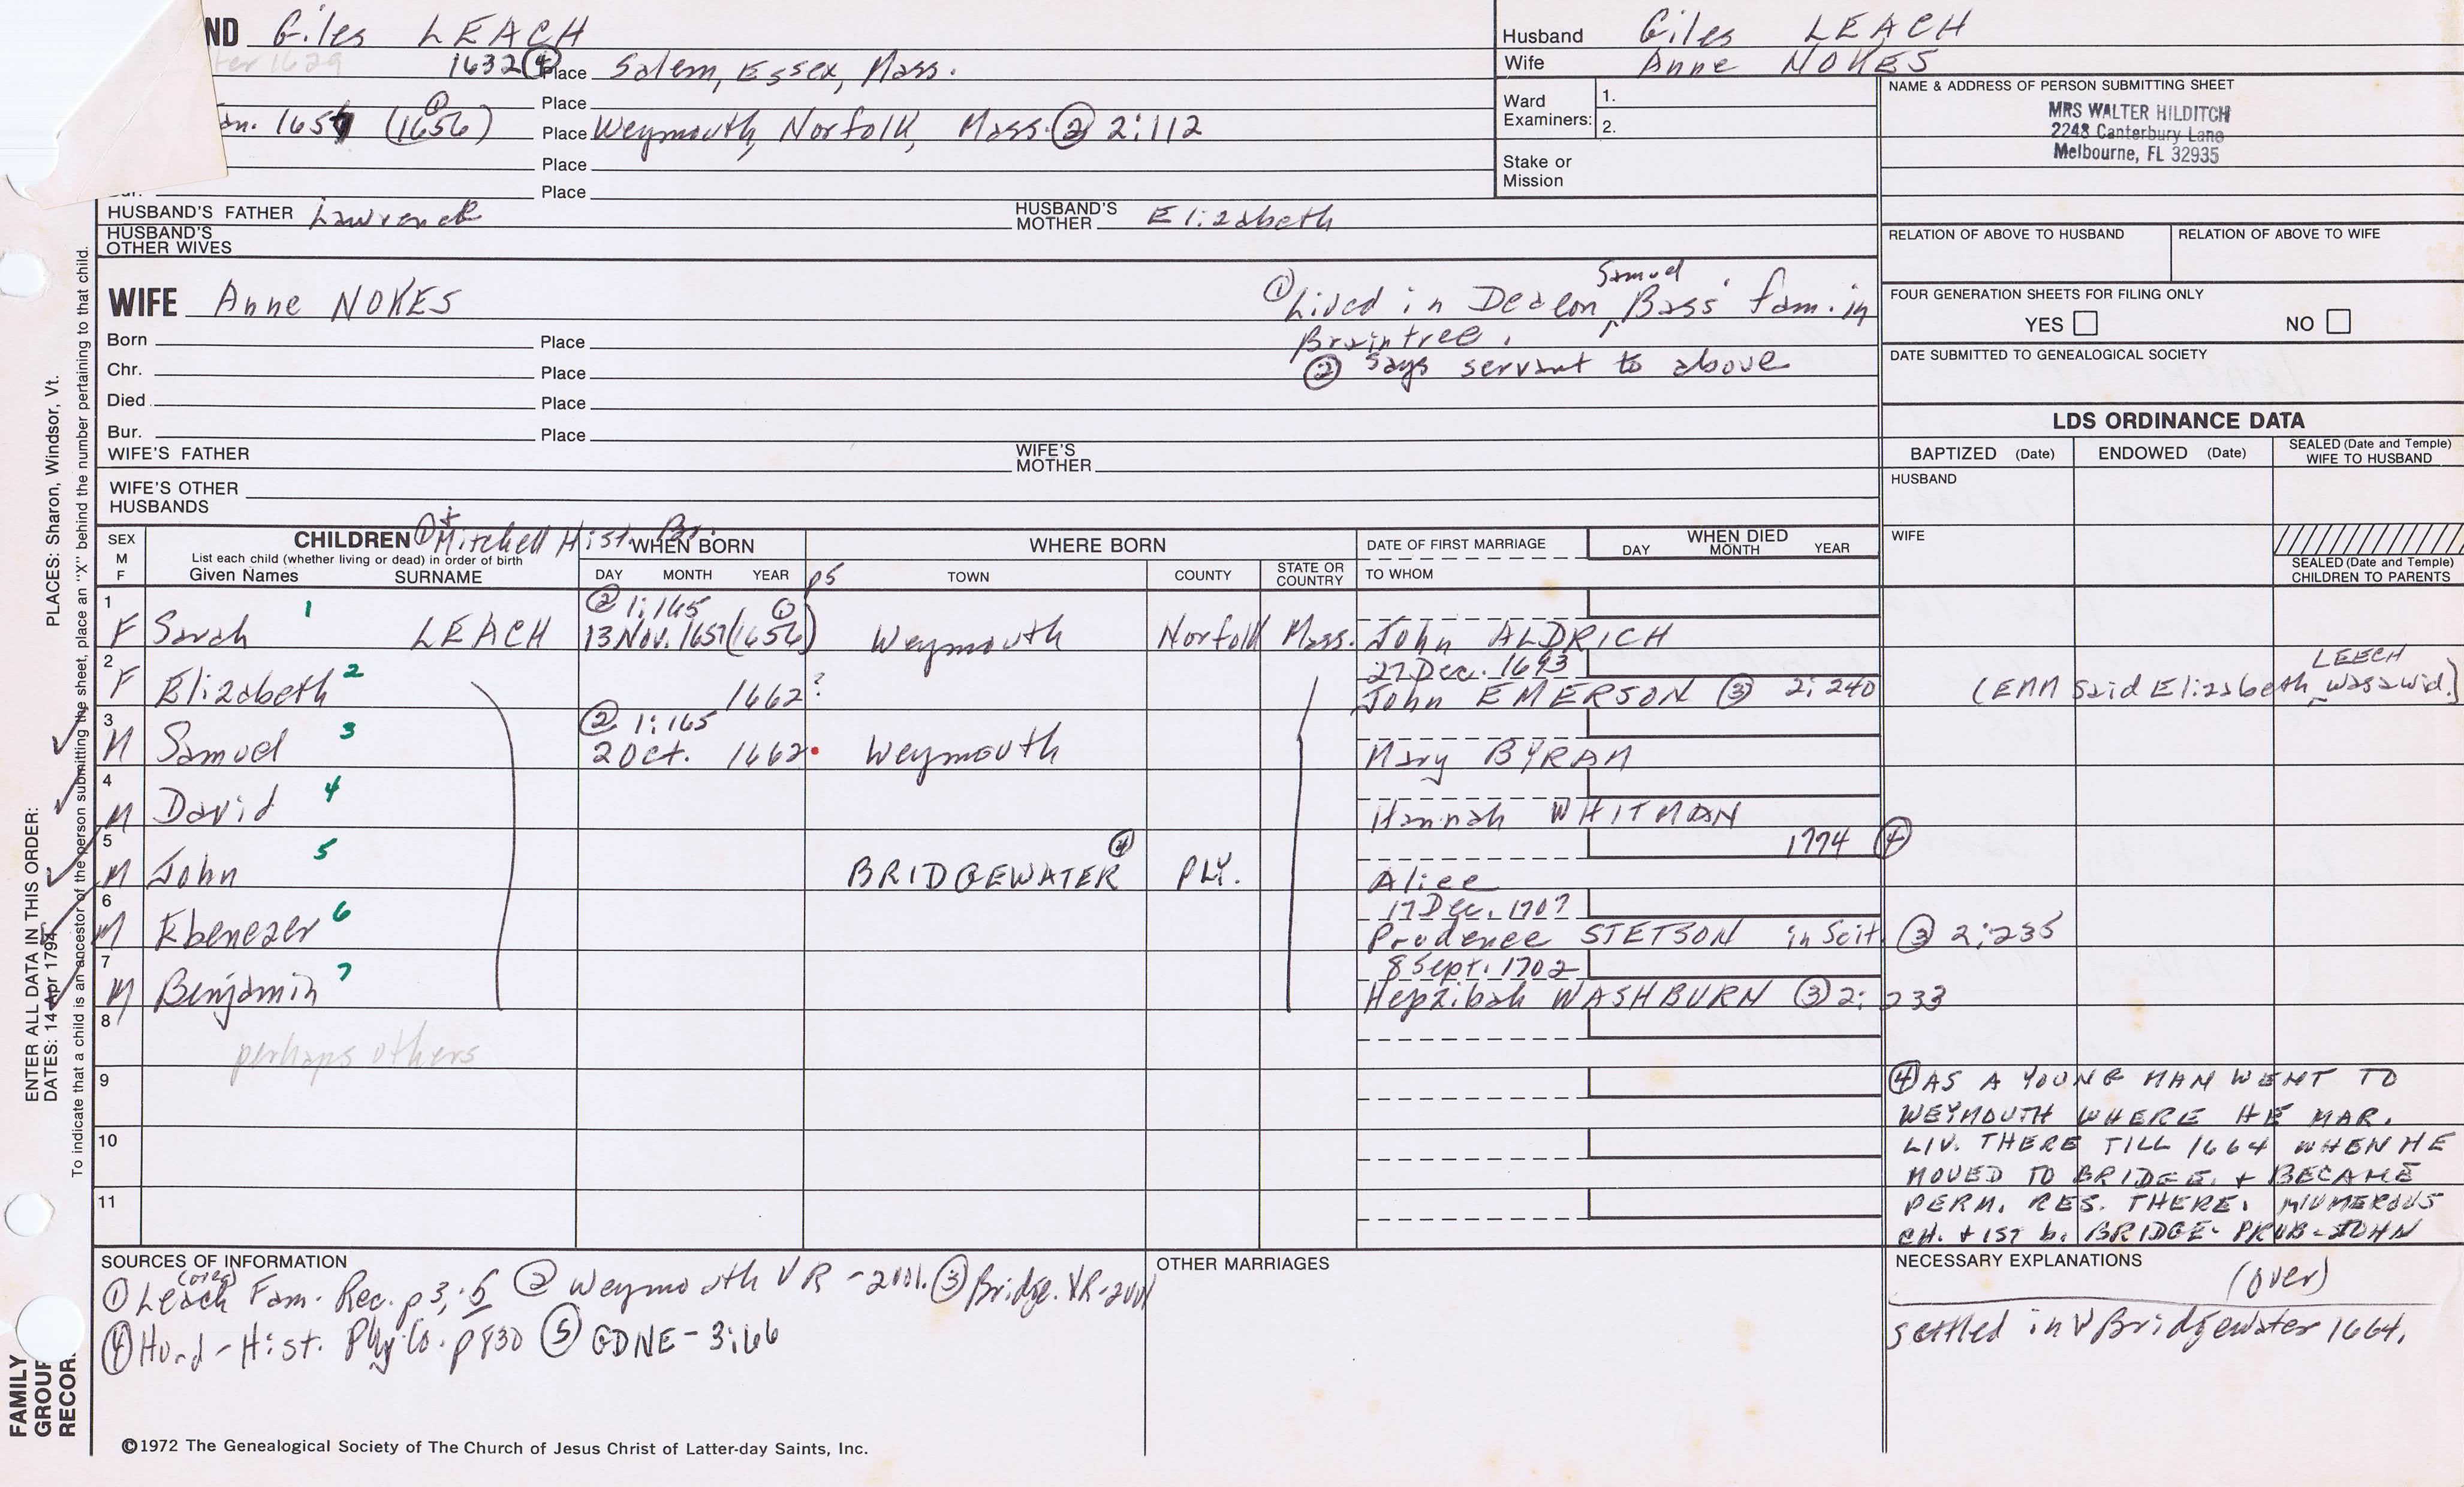 ND Giles LEACH
ter 1629 1632 ④ Place Salem, Essex, Mass.
Place
an. 1657 (1656) ① Place Weymouth, Norfolk, Mass. ② 2:112
Place
Bur. Place
HUSBAND'S FATHER Lawrence HUSBAND'S MOTHER Elizabeth
HUSBAND'S OTHER WIVES
Husband Giles LEACH
Wife Anne NOKES
Ward Examiners: 1.
2.
Stake or Mission
NAME & ADDRESS OF PERSON SUBMITTING SHEET
MRS WALTER HILDITCH
2248 Canterbury Lane
Melbourne, FL 32935
RELATION OF ABOVE TO HUSBAND RELATION OF ABOVE TO WIFE
FOUR GENERATION SHEETS FOR FILING ONLY
YES NO
DATE SUBMITTED TO GENEALOGICAL SOCIETY
WIFE Anne NOKES
Samuel
① Lived in Deacon Bass' fam. in
Braintree.
② says servant to above
Born Place
Chr. Place
Died Place
Bur. Place
WIFE'S FATHER WIFE'S MOTHER
WIFE'S OTHER HUSBANDS
LDS ORDINANCE DATA
BAPTIZED (Date) ENDOWED (Date) SEALED (Date and Temple) WIFE TO HUSBAND
HUSBAND
WIFE
SEALED (Date and Temple) CHILDREN TO PARENTS
SEX M F
CHILDREN ① + Mitchell Hist. Br. p5
List each child (whether living or dead) in order of birth
Given Names SURNAME
WHEN BORN
DAY MONTH YEAR
WHERE BORN
TOWN COUNTY STATE OR COUNTRY
DATE OF FIRST MARRIAGE
TO WHOM
WHEN DIED
DAY MONTH YEAR
② 1:165 ①
1 F Sarah 1 LEACH 13 Nov. 1657 (1656) Weymouth Norfolk Mass. John ALDRICH
27 Dec. 1693 LEECH
2 F Elizabeth 2 1662? John EMERSON ③ 2:240 (EMM said Elizabeth was a wid.)
② 1:165
3 M Samuel 3 2 Oct. 1662 Weymouth Mary BYRAM
4 M David 4 Hannah WHITMAN
1774 ④
5 M John 5 BRIDGEWATER ④ PLY. Alice
17 Dec. 1707
6 M Ebenezer 6 Prudence STETSON in Scit. ③ 2:235
8 Sept. 1702
7 M Benjamin 7 Hepzibah WASHBURN ③ 2:233
8 perhaps others
9
10
11
④ AS A YOUNG MAN WENT TO
WEYMOUTH WHERE HE MAR.
LIV. THERE TILL 1664 WHEN HE
MOVED TO BRIDGE. + BECAME
PERM. RES. THERE. NUMEROUS
CH. + 1ST b. BRIDGE. PROB. JOHN
SOURCES OF INFORMATION
① Leach Fam. Rec. p 3, 5 ② Weymouth VR - 2001. ③ Bridge. VR-2001
④ Hurd - Hist. Ply. Co. p 830 ⑤ GDNE - 3:66
OTHER MARRIAGES
NECESSARY EXPLANATIONS
(over)
settled in Bridgewater 1664.
©1972 The Genealogical Society of The Church of Jesus Christ of Latter-day Saints, Inc.
FAMILY
GROUP
RECOR
ENTER ALL DATA IN THIS ORDER:
DATES: 14 Apr 1794
PLACES: Sharon, Windsor, Vt.
To indicate that a child is an ancestor of the person submitting the sheet, place an "X" behind the number pertaining to that child.